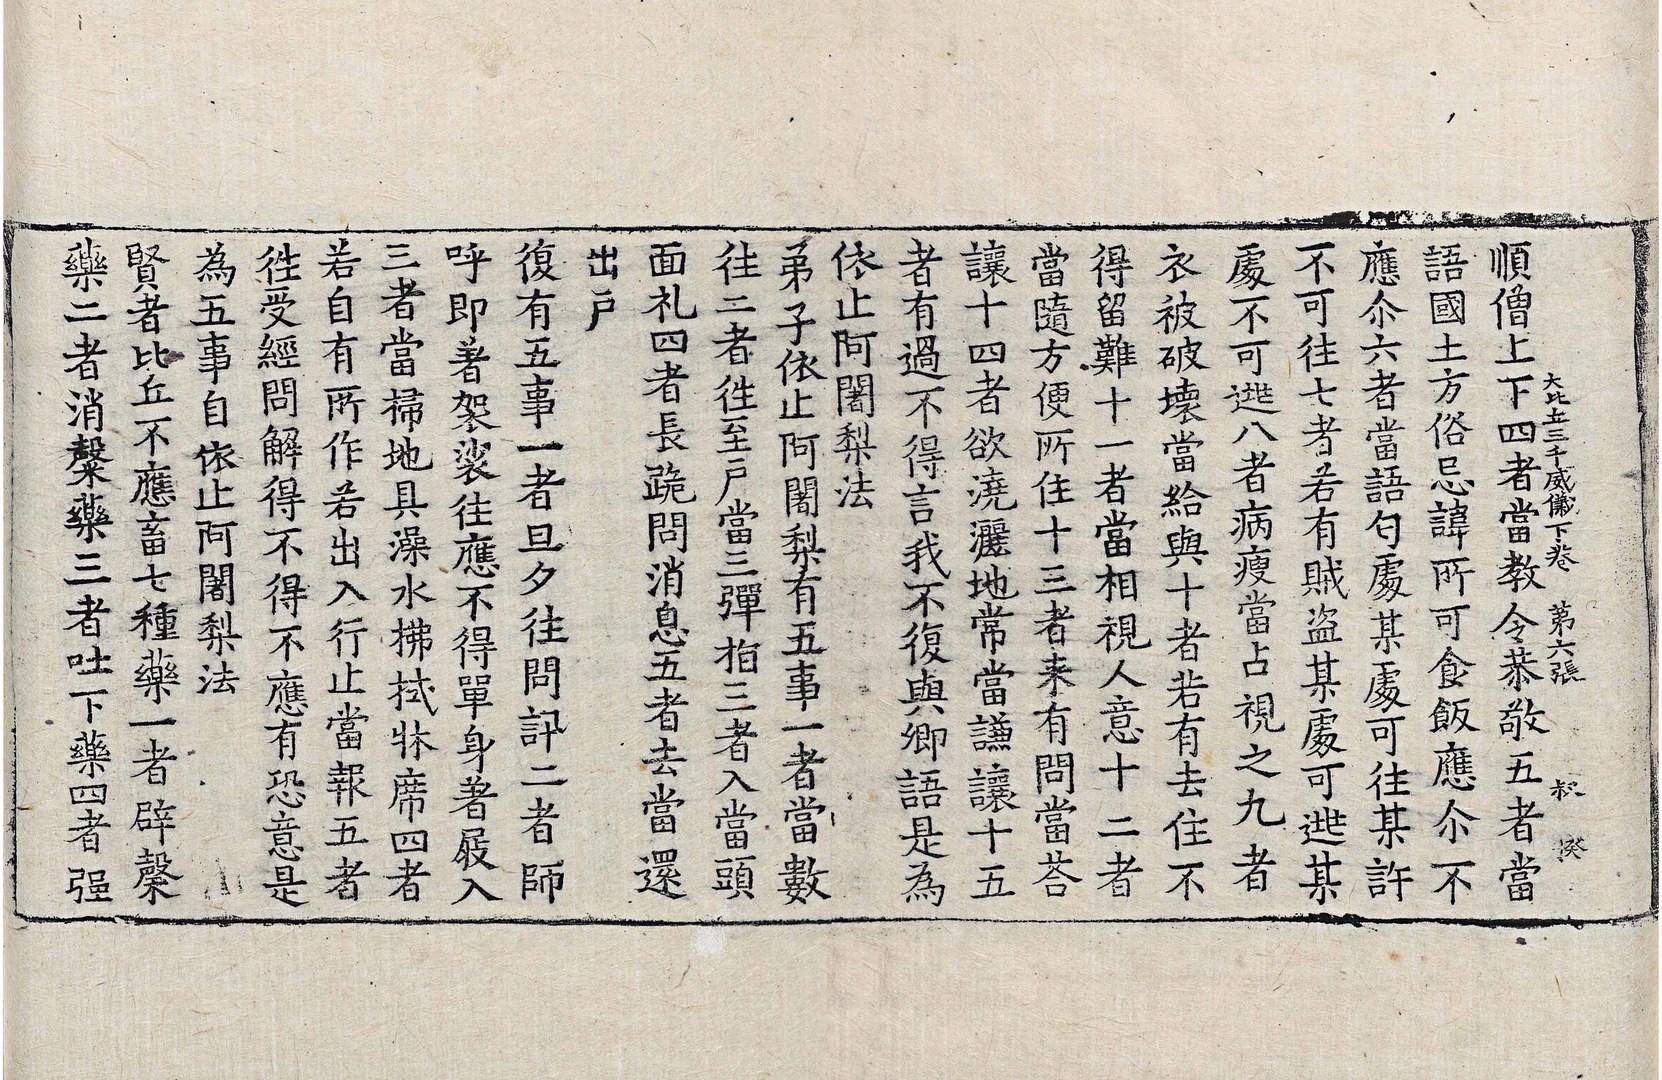 大比丘三千威儀下卷 第六張 叔 癸
順僧上下四者當教令恭敬五者當
語國土方俗忌諱所可食飯應尒不
應尒六者當語匄處某處可往某許
不可往七者若有賊盜某處可避某
處不可避八者病瘦當占視之九者
衣被破壞當給與十者若有去住不
得留難十一者當相視人意十二者
當隨方便所住十三者来有問當荅
讓十四者欲澆灑地常當謙讓十五
者有過不得言我不復與卿語是為
依止阿闍梨法
弟子依止阿闍梨有五事一者當數
往二者徃至户當三彈指三者入當頭
面礼四者長跪問消息五者去當還
出户
復有五事一者旦夕往問訊二者師
呼即著袈裟往應不得單身著屐入
三者當掃地具澡水拂拭牀席四者
若自有所作若出入行止當報五者
徃受經問解得不得不應有恐意是
為五事自依止阿闍梨法
賢者比丘不應畜七種藥一者辟穀
藥二者消穀藥三者吐下藥四者强